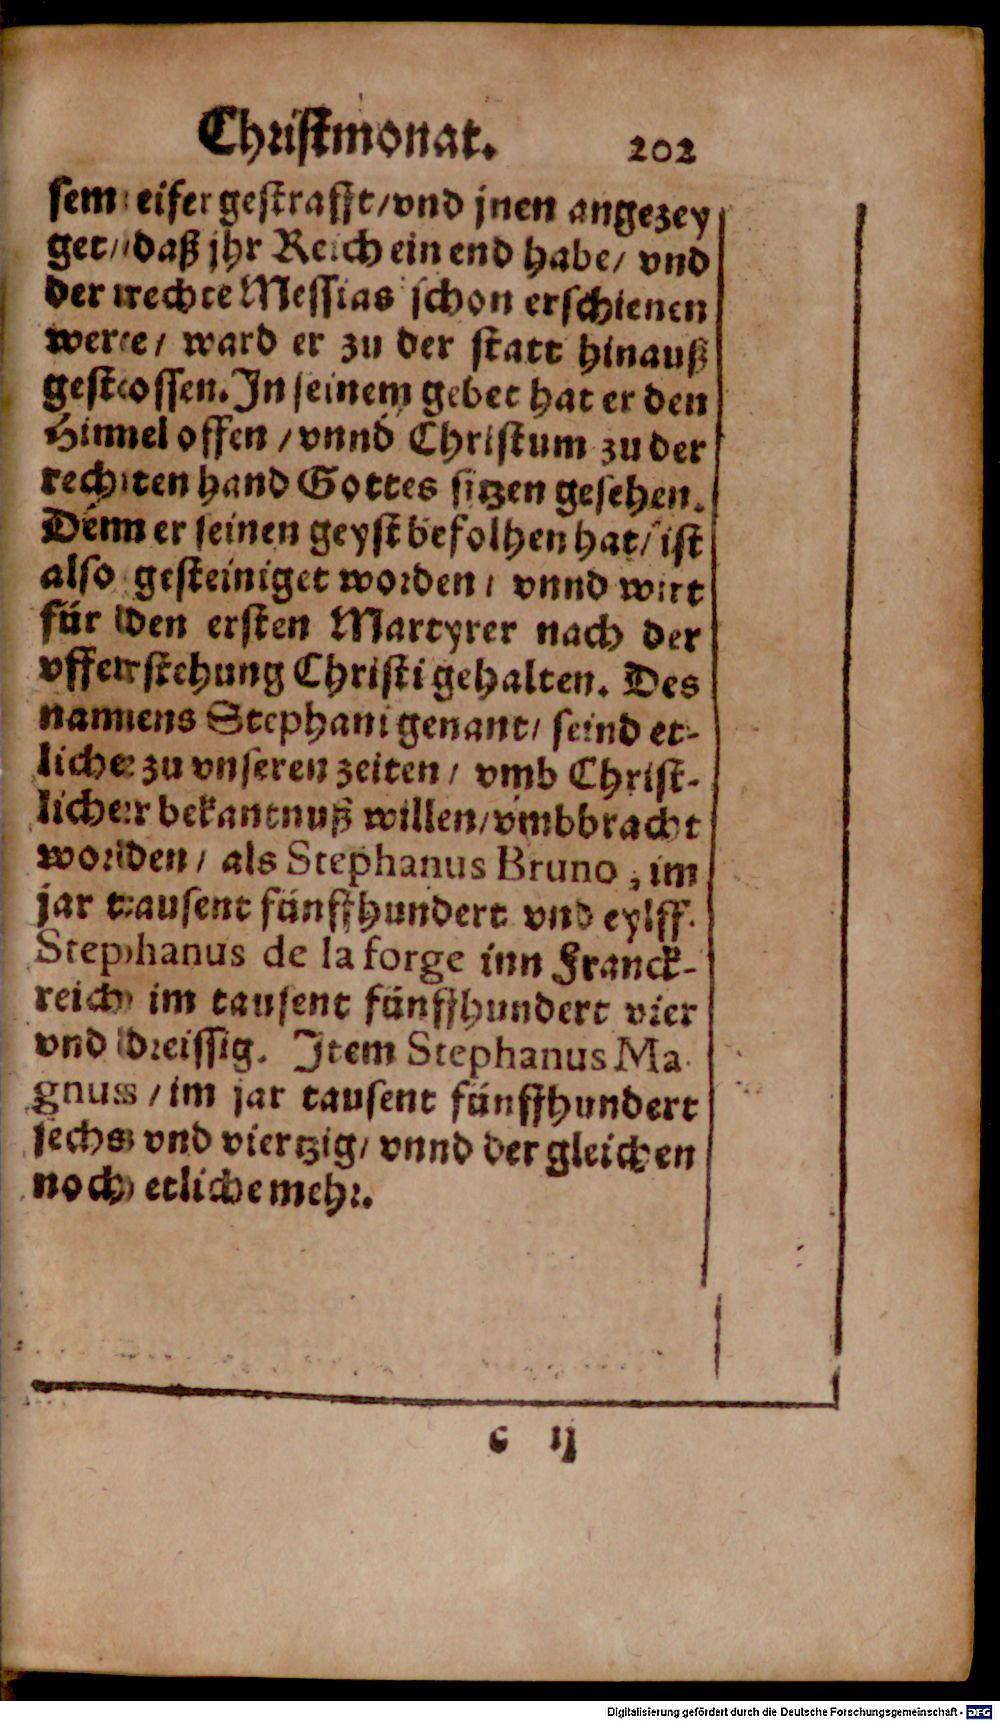 Christmonat. 202
sem eifer gestrafft/vnd jnen angezey
get/ daß jhr Reich ein end habe/ vnd
der rechte Messias schon erschienen
were/ ward er zu der statt hinauß
gestossen. In seinem gebet hat er den
Himmel offen / vnnd Christum zu der
rechten hand Gottes sitzen gesehen.
Denn er seinen geyst befolhen hat/ ist
also gesteiniget worden/ vnnd wirt
für den ersten Martyrer nach der
vfferstehung Christi gehalten. Des
nammens Stephani genant/ seind et-
liche zu vnseren zeiten / vmb Christ-
licher bekantnuß willen/vmbbracht
worden/ als Stephanus Bruno, im
jar tausent fünffhundert vnd eylff.
Stephanus de la forge inn Franck-
reich im tausent fünffhundert vier
vnd dreissig. Item Stephanus Ma
gnus /im jar tausent fünffhundert
sechs vnd viertzig/ vnnd der gleichen
noch etliche mehr.
c ij
Digitalisierung gefördert durch die Deutsche Forschungsgemeinschaft - DFG